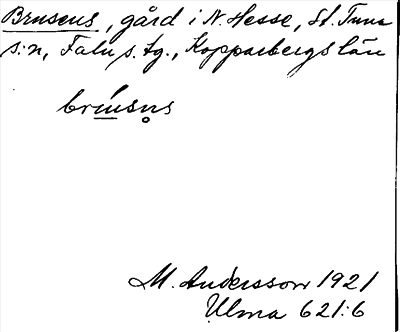 Brusens, gård i N. Hesse, St. Tuna
s:n, Falu s. tg., Kopparbergs län
M. Andersson 1921
Ulma 621:6